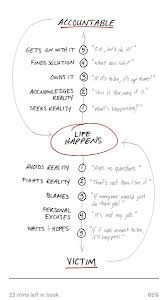 ACCOUNTABLE
GETS ON WITH IT 5 "O.K., let's do it!"
FINDS SOLUTION 4 "What can I do?"
OWNS IT 3
ACKNOWLEDGES REALITY 2 "This is the way it is"
SEEKS REALITY 1 "What's happening?"
LIFE HAPPENS
AVOIDS REALITY 1 "Ask no questions"
FIGHTS REALITY 2
BLAMES 3 "If everyone would just do their job"
PERSONAL EXCUSES 4 "It's not my job."
WAITS & HOPES 5 "If it was meant to be, it'll happen"
VICTIM
23 mins left in book 65%